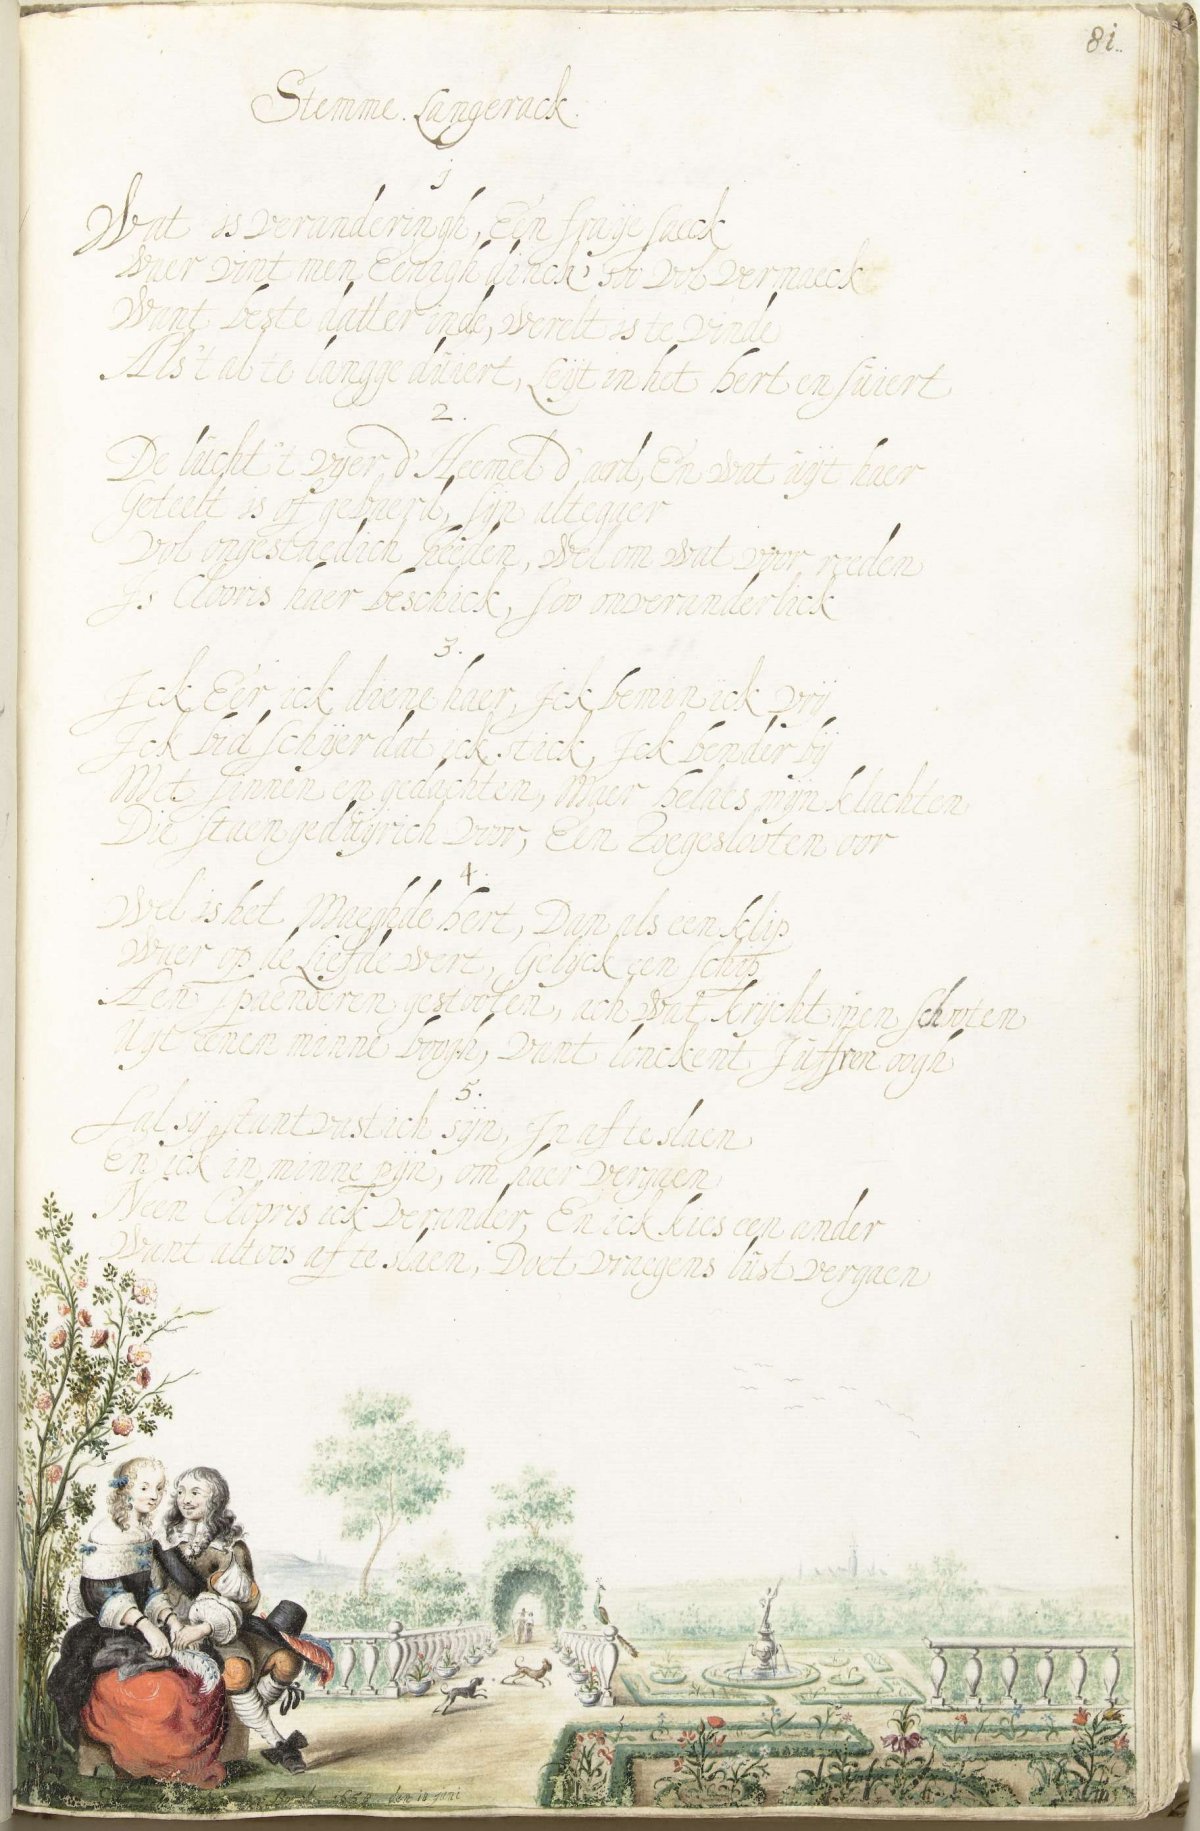 81.
Stemme. Langerack.
1
Wat is veranderingh, Een fraije saeck
Waer vint men Eenigh dinck, soo vol vermaeck
Want beste datter inde, werelt is te vinde
Als 't al te langge duiert, Leijt in het hert en suiert
2.
De lucht 't vyer, d'Heemel d'aerd, En wat uijt haer
Geteelt is of gebaerd, sijn altegaer
Vol ongestaedich heeden, Wel om wat voor reeden
Is Clooris haer beschick, soo onveranderlick
3.
Jck Eer ick diene haer, Jck bemin ick vrij
Jck bid schijer dat ick stick, Jck bender bij
Met sinnen en gedachten, Maer helaes mijn klachten
Die staen geduijrich voor, Een Toegeslooten oor
4.
Wel is het Maeghde hert, Dan als een klip
Waer op de Liefde wert, Gelijck een schip
Aen spaenderen gestooten, ach wat krijcht men schooten
Uijt Eenen minne boogh, Vant lonckent Juffren oogh
5.
Sal sij stantvastich sijn, In af te slaen
En ick in minne pijn, om haer vergaen
Neen Clooris ick verander, En ick kies een ander
Want altoos af te slaen, Doet vraegens lust vergaen
den 18 juni